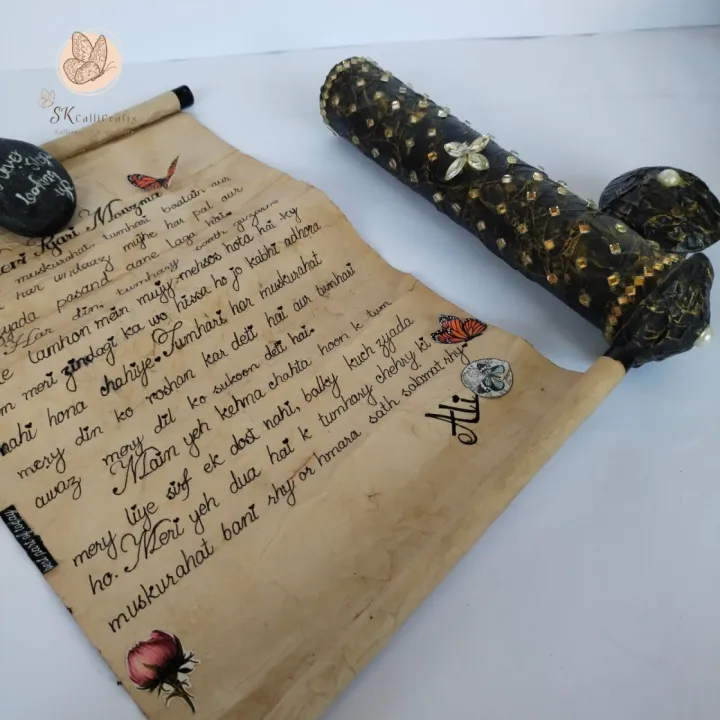 SK CalliCrafix
love
looking
up
eri Pyari Monzma
muskurahat, tumhari baatein aur
har undaazy mujhe har pal aur
zyada pasand aane laga hai.
Har din, tumhary saath guzaara
lamhon mein mujy mehsos hota hai ky
m meri zindagi ka wo hissa ho jo kabhi adhora
nahi hona chahiye. Tumhari har muskurahat
mery din ko roshan kar deti hai aur tumhari
awaz mery dil ko sukoon deti hai.
Main yeh kehna chahta hoon k tum
mery liye sirf ek dost nahi, balky kuch zyada
ho. Meri yeh dua hai k tumhary chehry ki
muskurahat bani rhy or hmara sath salamat rhy.
Ali
best part of today